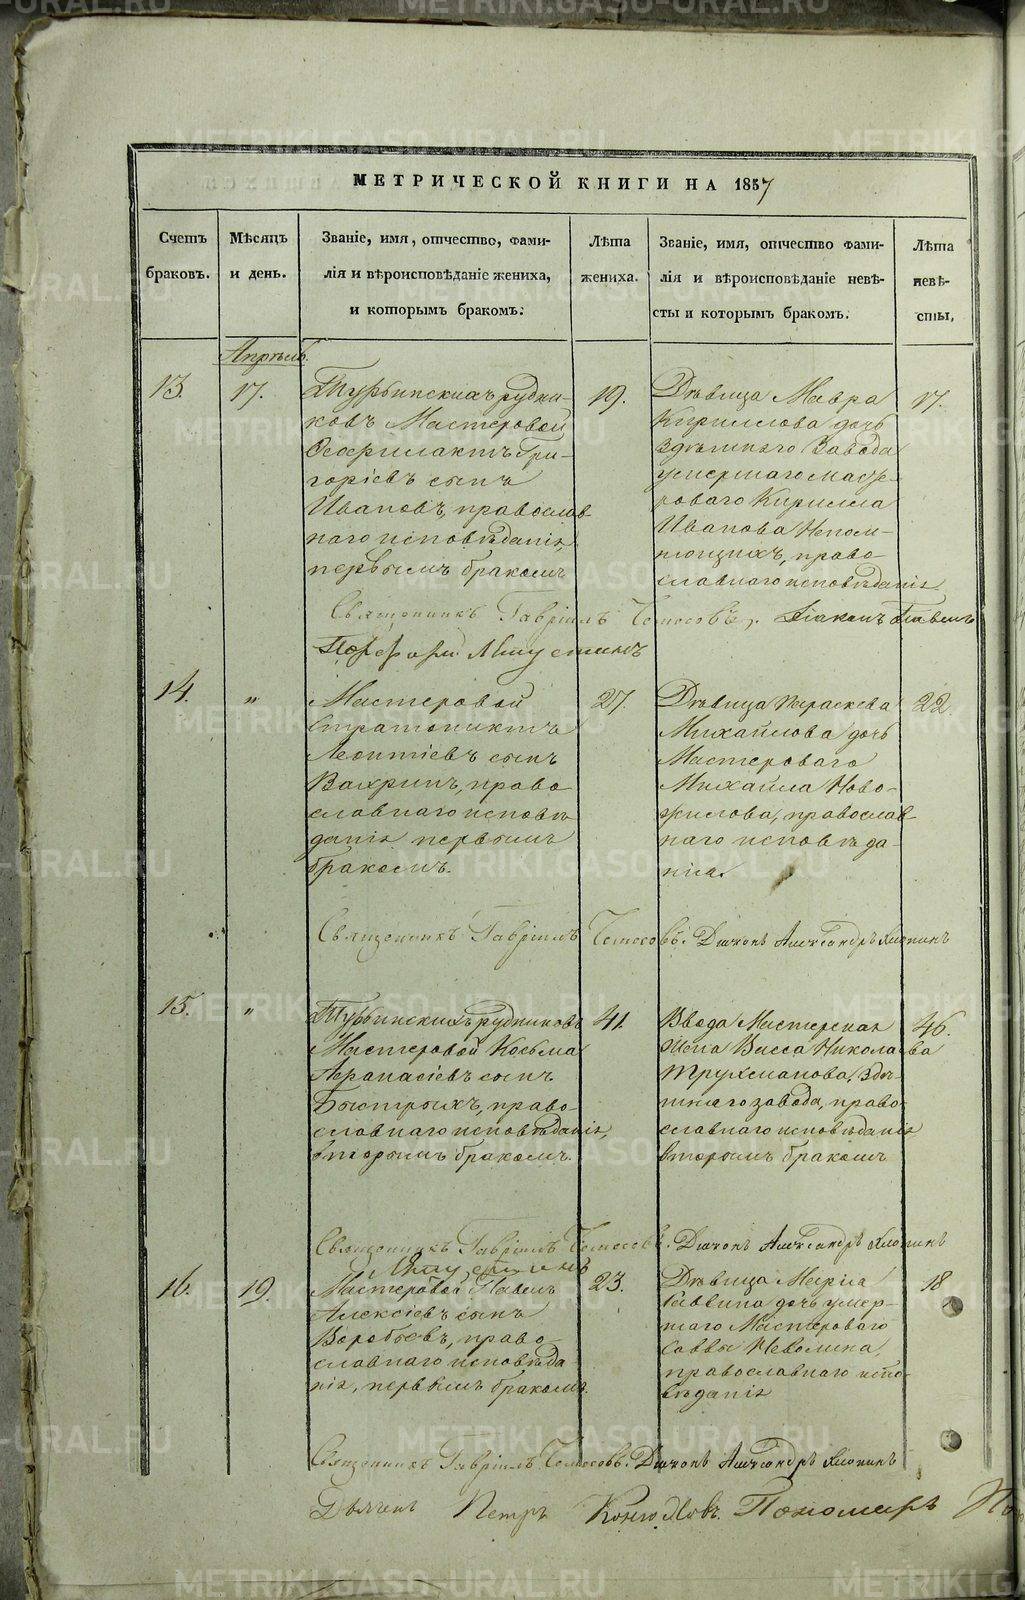 МЕТРИЧЕСКОЙ КНИГИ НА 1857
Счетъ
браковъ.
Мѣсяцъ
и день.
Званіе, имя, отчество, фами-
лія и вѣроисповѣданіе жениха,
и которымъ бракомъ.
Лѣта
жениха.
Званіе, имя, отчество фами-
лія и вѣроисповѣданіе невѣ-
сты и которымъ бракомъ.
Лѣта
невѣ-
сты.
Апрѣль.
13.
17.
Турьинскихъ рудни-
ковъ Мастеровой
Феофилактъ Гри-
горіевъ сынъ
Ивановъ, православ-
наго исповѣданія,
первымъ бракомъ
19.
Дѣвица Мавра
Кириллова дочь
Здѣшняго Завода
умершаго масте-
роваго Кирилла
Иванова Непом-
нющихъ, право-
славнаго исповѣданія
17.
Священникъ Гавріилъ Діаконъ Павелъ
14.
"
Мастеровой
Стратоникъ
Леонтіевъ сынъ
Вахринъ, право
славнаго исповѣ
данія первымъ
бракомъ.
27.
Дѣвица Параскева
Михайлова дочь
Мастероваго
Михаила Ново-
жилова, православ-
наго исповѣда-
нія.
22.
Священникъ Гавріилъ Діаконъ Александръ
15.
"
Турьинскихъ рудниковъ
Мастеровой Косьма
Афанасіевъ сынъ
Быстрыхъ, право-
славнаго исповѣданія,
вторымъ бракомъ.
41.
Вдова Мастерская
жена Васса Николаева
Трухманова, Здѣ-
шняго завода, право-
славнаго исповѣданія
вторымъ бракомъ
46.
Священникъ Гавріилъ Діаконъ Александръ
16.
19.
Мастеровой Павелъ
Алексіевъ сынъ
Воробьевъ, право-
славнаго исповѣда
нія, первымъ бракомъ.
23.
Дѣвица Марія
Саввина дочь умер-
шаго Мастероваго
Саввы Неволина,
православнаго испо-
вѣданія
18
Священникъ Гавріилъ Діаконъ Александръ
Дьячекъ Петръ Пономарь